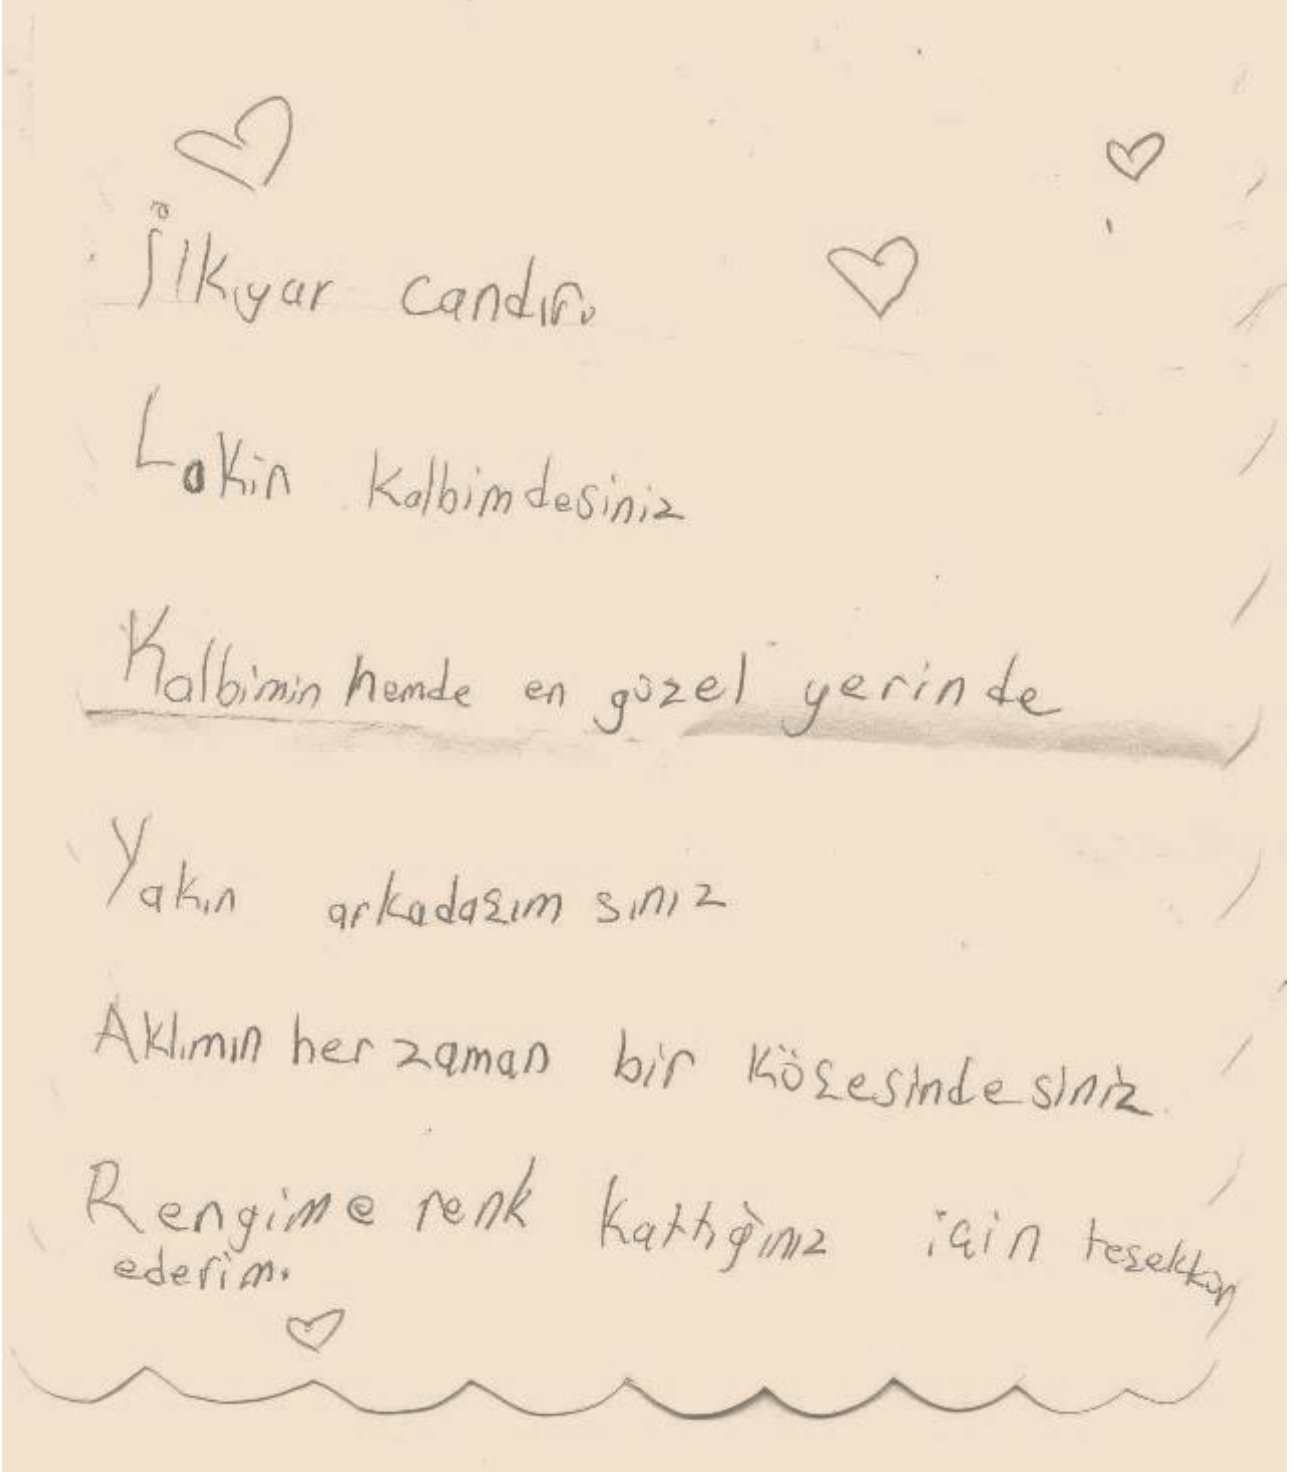 İlkyar candır.
Lakin kalbimdesiniz
Kalbimin hemde en güzel yerinde
Yakın arkadaşım sınız
Aklımın her zaman bir köşesindesiniz.
Rengime renk kattığınız için teşekkür
ederim.